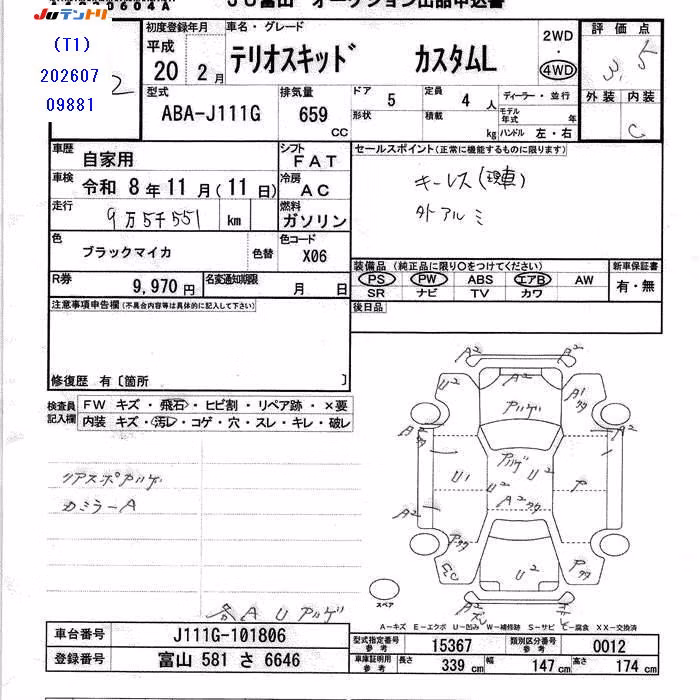 JU富山 オークション出品申込書
JUテントリ
(T1)
202607
09881
2
初度登録年月
平成
20 年 2 月
車名・グレード
テリオスキッド カスタムL
2WD
・
4WD
評価点
3.5
外装 内装
C
型式
ABA-J111G
排気量
659
CC
ドア 5
形状
定員 4 人
積載 kg
ディーラー・並行
モデル年式 年
ハンドル 左・右
車歴
自家用
シフト
FAT
セールスポイント(正常に機能するものに限ります)
キーレス(現車)
外アルミ
車検
令和 8 年 11 月 (11 日)
冷房
AC
走行
9万5千551 km
燃料
ガソリン
色
ブラックマイカ
色替
色コード
X06
装備品 (純正品に限り○をつけてください)
PS PW ABS エアB AW
SR ナビ TV カワ
新車保証書
有・無
R券
9,970円
名変通知期限
月 日
後日品
注意事項申告欄(不具合内容等は具体的に記入して下さい)
修復歴 有〔箇所 〕
検査員記入欄
FW キズ・飛石・ヒビ割・リペア跡・×要
内装 キズ・汚レ・コゲ・穴・スレ・キレ・破レ
リアスポアハゲ
カミラーA
各AUアハゲ
A2 A2
U2 A2 A1
アハゲ
A2 A2
アハゲ U2
U1 U2 ア
A2
A2
U2
スペア
A2
A-キズ E-エクボ U-凹み W-補修跡 S-サビ C-腐食 XX-交換済
車台番号
J111G-101806
登録番号
富山 581 さ 6646
型式指定番号
参考
15367
類別区分番号
参考
0012
車庫証明用
参考
長さ 339 cm 幅 147 cm 高さ 174 cm